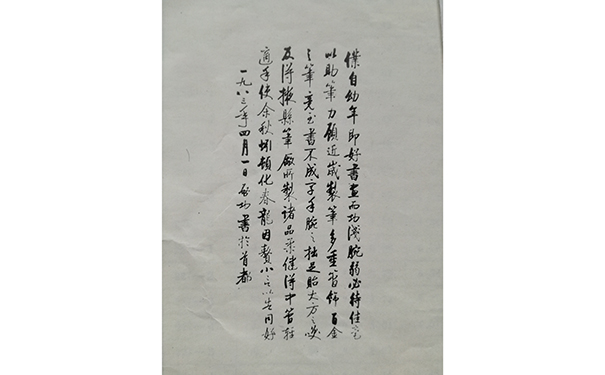 僕自幼年即好書画而功浅腕弱必待佳毫
以助筆力顧近歲製筆多重管飾百金
之筆竟至書不成字手腕之拙足貽大方之哂
及得掖縣筆廠所製诸品柔健得中管軽
適手使余秋蚓頓化春龍因贅小言以告同好
一九八三年四月一日启功書於首都